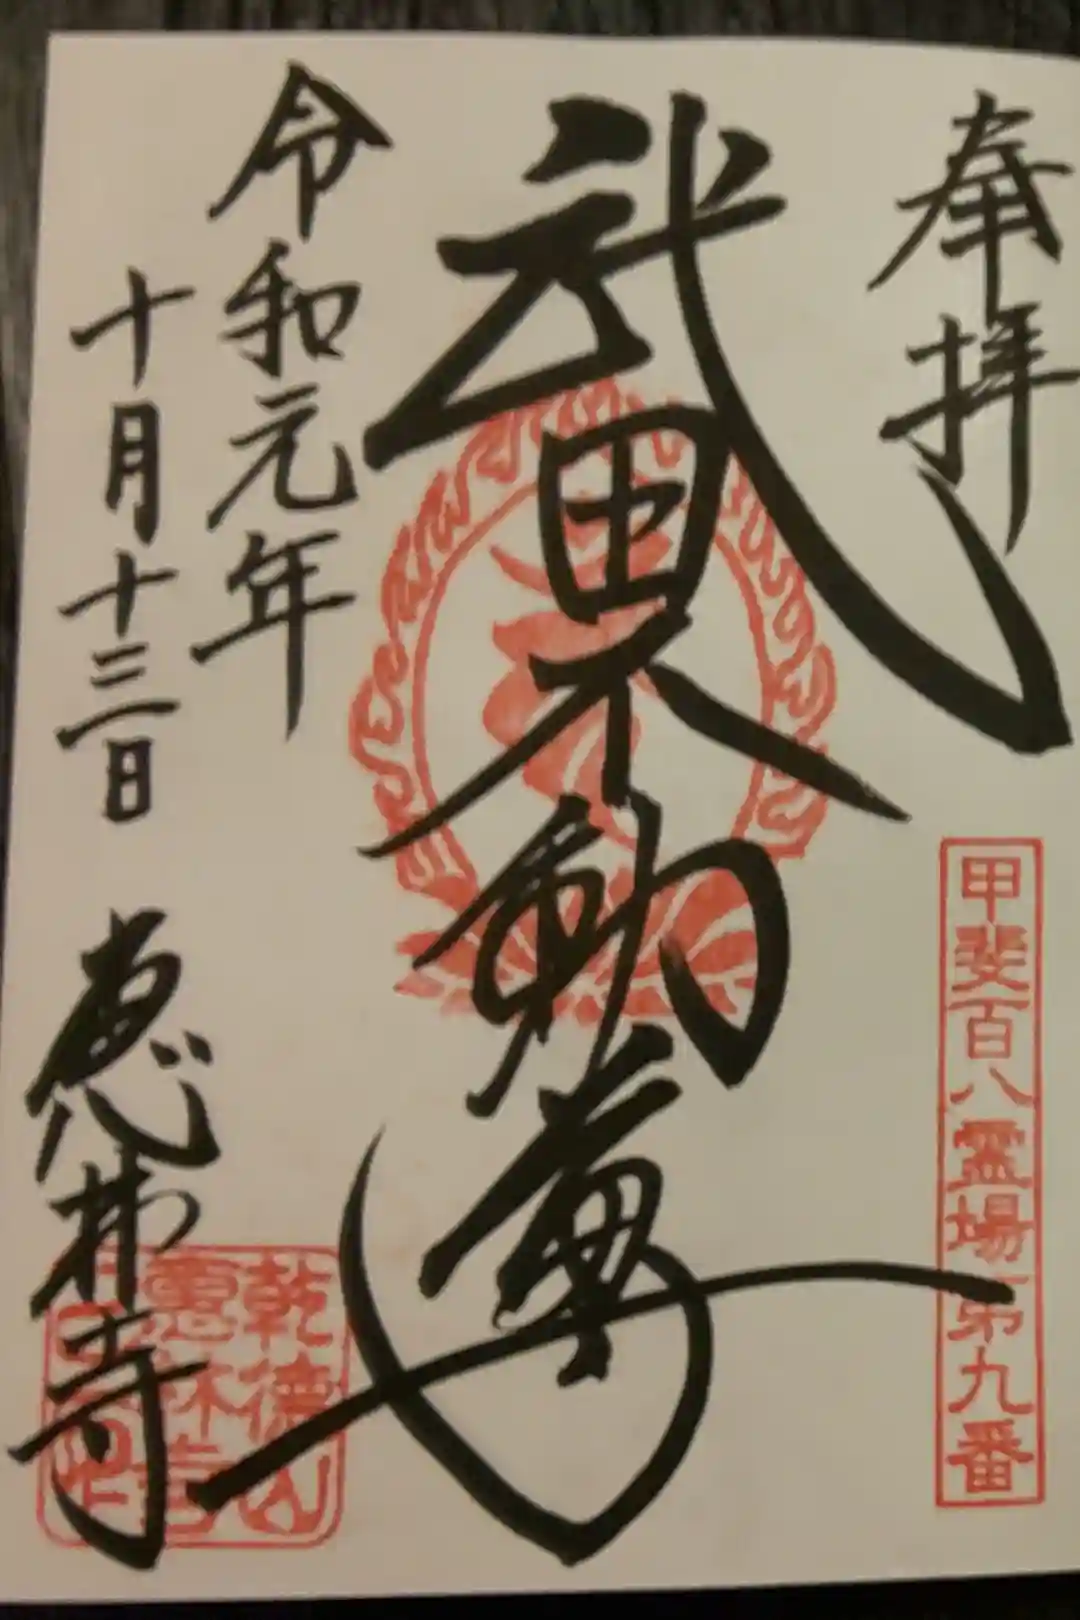 奉拝
甲斐百八霊場第九番
武田不動尊
令和元年
十月十三日
恵林寺
乾徳山